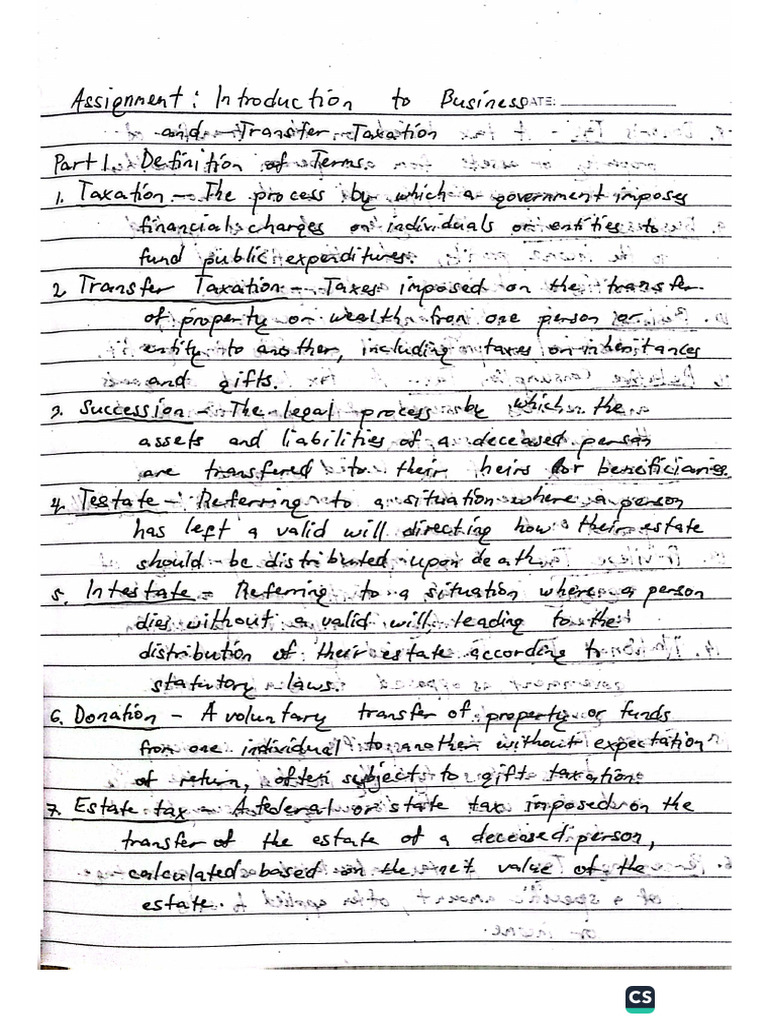 Assignment: Introduction to Business DATE:
and Transfer Taxation
Part 1. Definition of Terms
1. Taxation - The process by which a government imposes
financial charges on individuals or entities to
fund public expenditures.
2. Transfer Taxation - Taxes imposed on the transfer
of property or wealth from one person or
entity to another, including taxes on inheritances
and gifts.
3. Succession - The legal process by which the
assets and liabilities of a deceased person
are transferred to their heirs or beneficiaries.
4. Testate - Referring to a situation where a person
has left a valid will directing how their estate
should be distributed upon death.
5. Intestate - Referring to a situation where a person
dies without a valid will, leading to the
distribution of their estate according to
statutory laws.
6. Donation - A voluntary transfer of property or funds
from one individual to another without expectation
of return, often subject to gift taxation.
7. Estate tax - A federal or state tax imposed on the
transfer of the estate of a deceased person,
calculated based on the net value of the
estate.
CS